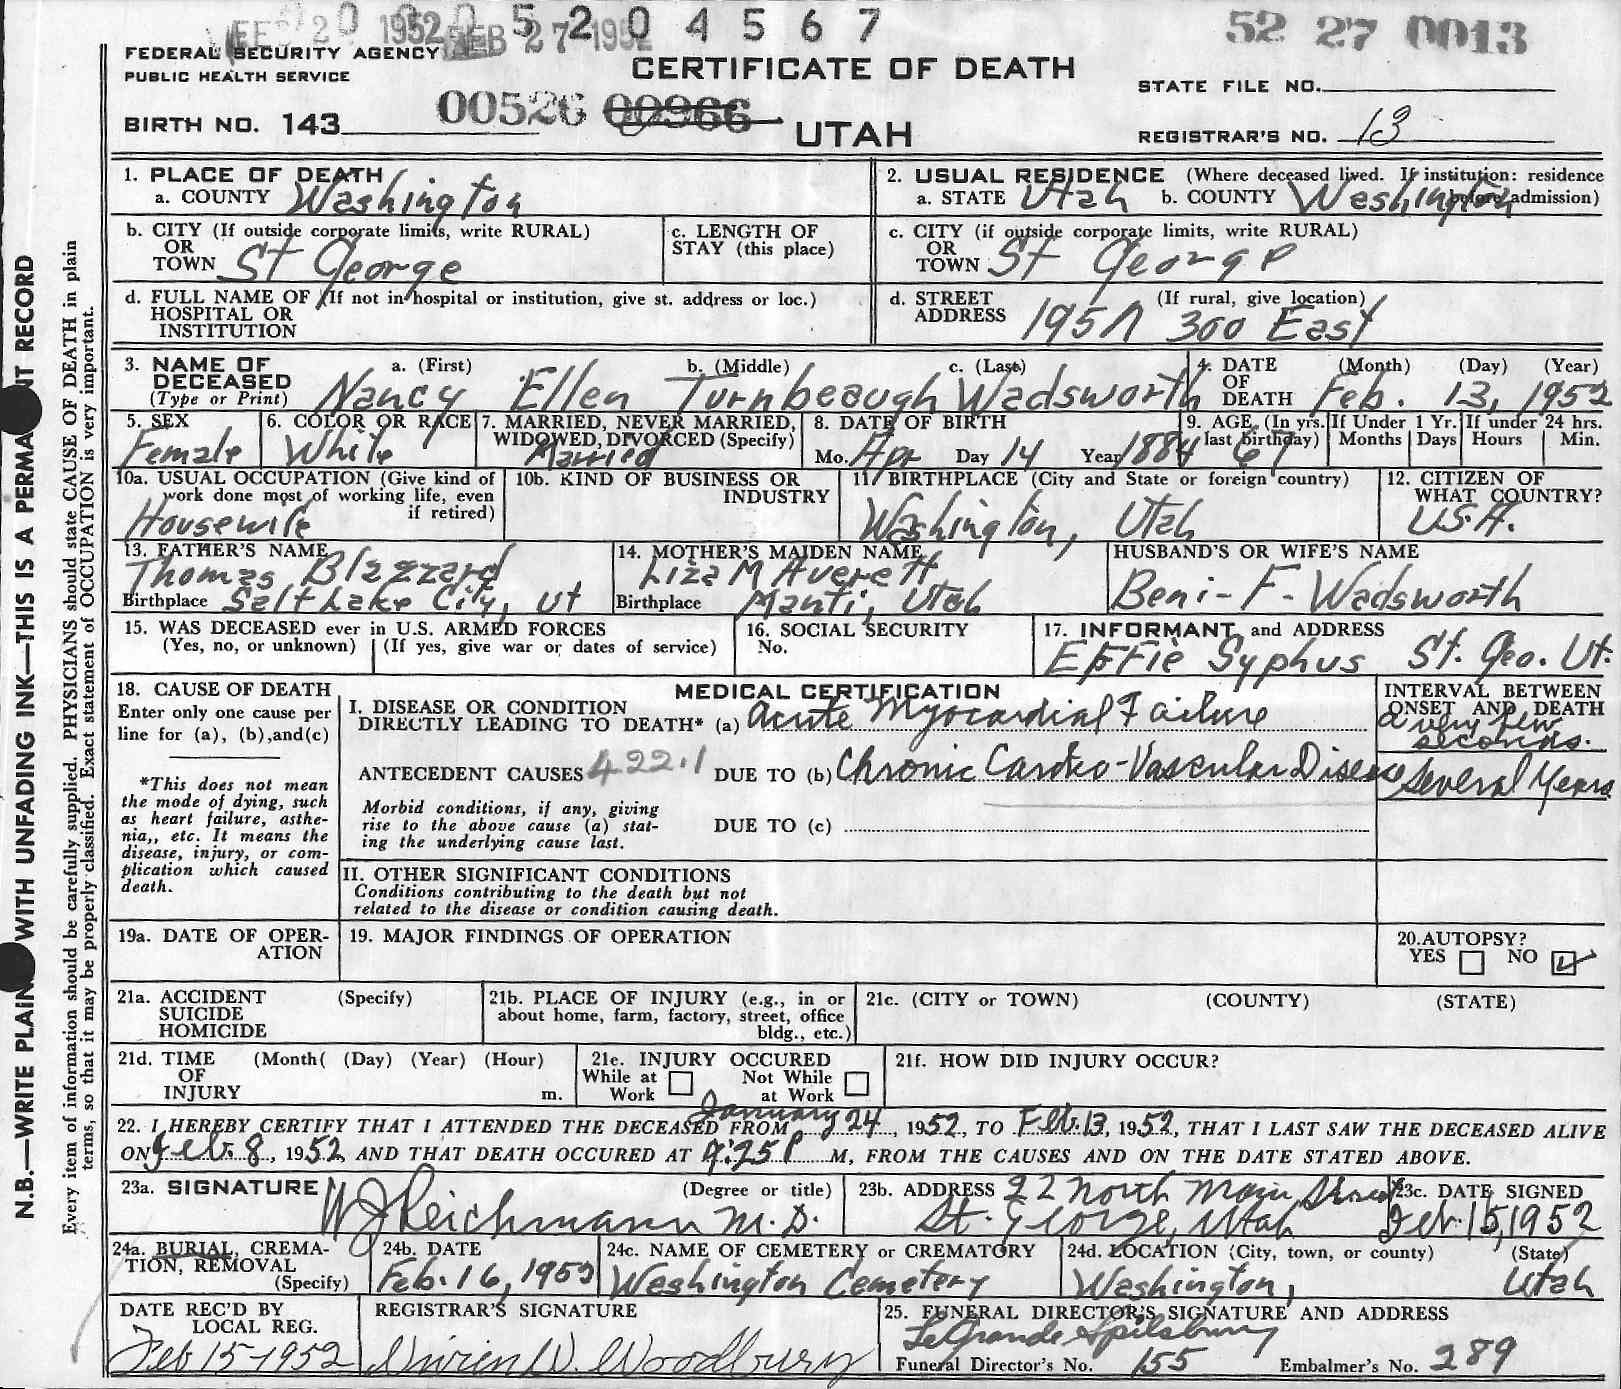 FEB 20 1952 FEB 27 1952
0 0 0 5 2 0 4 5 6 7
52 27 0013
FEDERAL SECURITY AGENCY
PUBLIC HEALTH SERVICE
CERTIFICATE OF DEATH
STATE FILE NO.
BIRTH NO. 143 00526 00966 UTAH
REGISTRAR'S NO. 13
N.B.—WRITE PLAIN WITH UNFADING INK—THIS IS A PERMA NT RECORD
Every item of information should be carefully supplied. PHYSICIANS should state CAUSE OF DEATH in plain
terms, so that it may be properly classified. Exact statement of OCCUPATION is very important.
1. PLACE OF DEATH
a. COUNTY Washington
2. USUAL RESIDENCE (Where deceased lived. If institution: residence
before admission)
a. STATE Utah b. COUNTY Washington
b. CITY (If outside corporate limits, write RURAL)
OR
TOWN St George
c. LENGTH OF
STAY (this place)
c. CITY (if outside corporate limits, write RURAL)
OR
TOWN St George
d. FULL NAME OF (If not in hospital or institution, give st. address or loc.)
HOSPITAL OR
INSTITUTION
d. STREET (If rural, give location)
ADDRESS 195 N 300 East
3. NAME OF
DECEASED
(Type or Print)
a. (First) b. (Middle) c. (Last)
Nancy Ellen Turnbeaugh Wadsworth
4. DATE (Month) (Day) (Year)
OF
DEATH Feb. 13, 1952
5. SEX
Female
6. COLOR OR RACE
White
7. MARRIED, NEVER MARRIED,
WIDOWED, DIVORCED (Specify)
Married
8. DATE OF BIRTH
Mo. Apr Day 14 Year 1884
9. AGE (In yrs.
last birthday)
67
If Under 1 Yr.
Months Days
If under 24 hrs.
Hours Min.
10a. USUAL OCCUPATION (Give kind of
work done most of working life, even
if retired)
Housewife
10b. KIND OF BUSINESS OR
INDUSTRY
11. BIRTHPLACE (City and State or foreign country)
Washington, Utah
12. CITIZEN OF
WHAT COUNTRY?
U.S.A.
13. FATHER'S NAME
Thomas Blazzard
Birthplace Salt Lake City, Ut
14. MOTHER'S MAIDEN NAME
Liza M Averett
Birthplace Manti, Utah
HUSBAND'S OR WIFE'S NAME
Benj- F- Wadsworth
15. WAS DECEASED ever in U.S. ARMED FORCES
(Yes, no, or unknown) (If yes, give war or dates of service)
16. SOCIAL SECURITY
No.
17. INFORMANT and ADDRESS
Effie Syphus St. Geo. Ut.
18. CAUSE OF DEATH
Enter only one cause per
line for (a), (b),and(c)
*This does not mean
the mode of dying, such
as heart failure, asthe-
nia,, etc. It means the
disease, injury, or com-
plication which caused
death.
MEDICAL CERTIFICATION
I. DISEASE OR CONDITION
DIRECTLY LEADING TO DEATH* (a) Acute Myocardial Failure
ANTECEDENT CAUSES 422.1 DUE TO (b) Chronic Cardio-Vascular Disease
Morbid conditions, if any, giving
rise to the above cause (a) stat-
ing the underlying cause last.
DUE TO (c)
II. OTHER SIGNIFICANT CONDITIONS
Conditions contributing to the death but not
related to the disease or condition causing death.
INTERVAL BETWEEN
ONSET AND DEATH
a very few
seconds.
Several Years
19a. DATE OF OPER-
ATION
19. MAJOR FINDINGS OF OPERATION
20.AUTOPSY?
YES NO
21a. ACCIDENT (Specify)
SUICIDE
HOMICIDE
21b. PLACE OF INJURY (e.g., in or
about home, farm, factory, street, office
bldg., etc.)
21c. (CITY or TOWN) (COUNTY) (STATE)
21d. TIME (Month( (Day) (Year) (Hour)
OF
INJURY m.
21e. INJURY OCCURED
While at Not While
Work at Work
21f. HOW DID INJURY OCCUR?
22. I HEREBY CERTIFY THAT I ATTENDED THE DECEASED FROM January 24, 1952, TO Feb. 13, 1952, THAT I LAST SAW THE DECEASED ALIVE
ON Feb. 8, 1952, AND THAT DEATH OCCURED AT 9:25 P M, FROM THE CAUSES AND ON THE DATE STATED ABOVE.
23a. SIGNATURE (Degree or title)
W J Reichmann M.D.
23b. ADDRESS 22 North Main Street
St. George, Utah
23c. DATE SIGNED
Feb. 15, 1952
24a. BURIAL, CREMA-
TION, REMOVAL
(Specify)
24b. DATE
Feb. 16, 1952
24c. NAME OF CEMETERY or CREMATORY
Washington Cemetery
24d. LOCATION (City, town, or county) (State)
Washington, Utah
DATE REC'D BY
LOCAL REG.
Feb 15-1952
REGISTRAR'S SIGNATURE
Vivien W. Woodbury
25. FUNERAL DIRECTOR'S SIGNATURE AND ADDRESS
LeGrande Spilsbury
Funeral Director's No. 155 Embalmer's No. 289